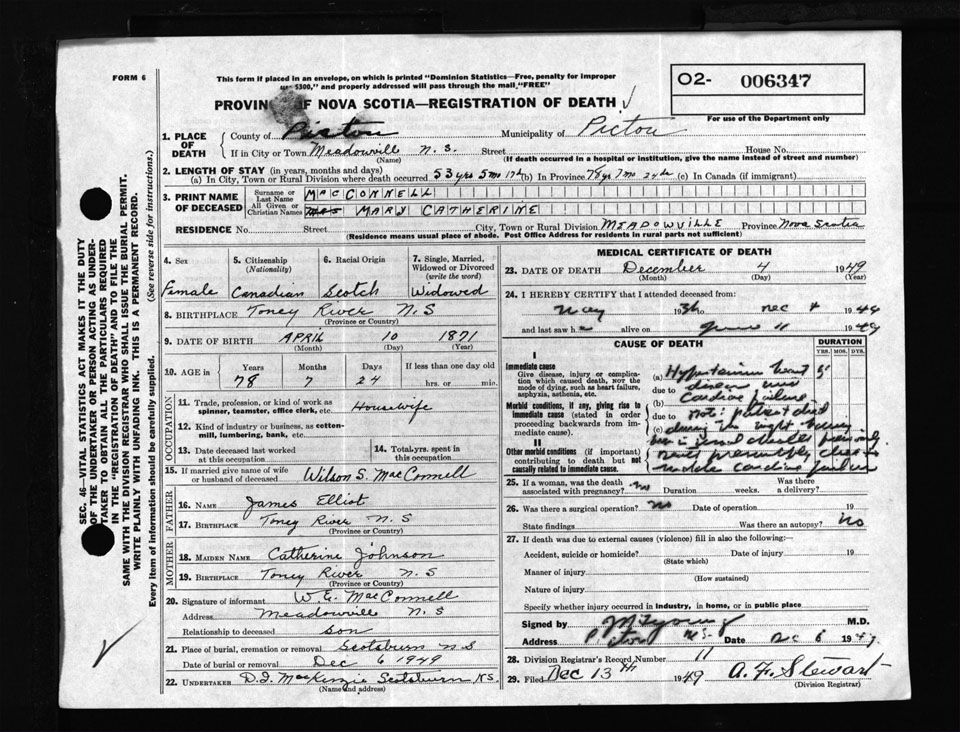 FORM 6
This form if placed in an envelope, on which is printed "Dominion Statistics—Free, penalty for improper
$300," and properly addressed will pass through the mail "FREE"
O2- 006347
For use of the Department only
PROVINCE OF NOVA SCOTIA—REGISTRATION OF DEATH
1. PLACE OF DEATH
County of Pictou Municipality of Pictou
If in City or Town Meadowville N. S. Street House No.
(Name) (If death occurred in a hospital or institution, give the name instead of street and number)
2. LENGTH OF STAY (in years, months and days)
(a) In City, Town or Rural Division where death occurred 53 yrs 5 mo 17 d (b) In Province 78 yr 7 mo 24 da (c) In Canada (if immigrant)
3. PRINT NAME OF DECEASED
Surname or Last Name MACCONNELL
All Given or Christian Names MARY CATHERINE
RESIDENCE No. Street City, Town or Rural Division MEADOWVILLE Province Nova Scotia
(Residence means usual place of abode. Post Office Address for residents in rural parts not sufficient)
4. Sex Female
5. Citizenship (Nationality) Canadian
6. Racial Origin Scotch
7. Single, Married, Widowed or Divorced (write the word) Widowed
8. BIRTHPLACE Toney River N. S
(Province or Country)
9. DATE OF BIRTH APRIL 10 1871
(Month) (Day) (Year)
10. AGE in Years Months Days If less than one day old
78 7 24 hrs. or min.
OCCUPATION
11. Trade, profession, or kind of work as spinner, teamster, office clerk, etc. Housewife
12. Kind of industry or business, as cotton-mill, lumbering, bank, etc.
13. Date deceased last worked at this occupation
14. Total yrs. spent in this occupation
15. If married give name of wife or husband of deceased Wilson S. MacConnell
FATHER
16. NAME James Elliot
17. BIRTHPLACE Toney River N. S
(Province or Country)
MOTHER
18. MAIDEN NAME Catherine Johnson
19. BIRTHPLACE Toney River N. S
(Province or Country)
20. Signature of informant W. E. MacConnell
Address Meadowville N. S
Relationship to deceased son
21. Place of burial, cremation or removal Scotsburn N S
Date of burial or removal Dec 6 1949
22. UNDERTAKER D. I. MacKenzie Scotsburn N.S.
(Name and address)
MEDICAL CERTIFICATE OF DEATH
23. DATE OF DEATH December 4 1949
(Month) (Day) (Year)
24. I HEREBY CERTIFY that I attended deceased from:
May 19 to Dec 4 19
and last saw h alive on June 11 1949
CAUSE OF DEATH
DURATION
YRS. MOS. DYS.
I
Immediate cause
Give disease, injury or complication which caused death, NOT the mode of dying, such as heart failure, asphyxia, asthenia, etc.
(a) Hypertensive heart 5
due to disease and
(b) cardiac failure
Morbid conditions, if any, giving rise to immediate cause (stated in order proceeding backwards from immediate cause).
due to Note: patient died
(c) during the night having
been in usual health previously
II
Other morbid conditions (if important) contributing to death but not causally related to immediate cause.
death presumably due to
sudden cardiac failure
25. If a woman, was the death associated with pregnancy? no Duration weeks. Was there a delivery?
26. Was there a surgical operation? no Date of operation 19
State findings Was there an autopsy? no
27. If death was due to external causes (violence) fill in also the following:—
Accident, suicide or homicide? Date of injury 19
(State which)
Manner of injury
(How sustained)
Nature of injury
Specify whether injury occurred in industry, in home, or in public place
Signed by Young M.D.
Address Pictou N.S. Date Dec 6 1949
28. Division Registrar's Record Number 11
29. Filed Dec 13th 1949 A. F. Stewart
(Division Registrar)
SEC. 46—VITAL STATISTICS ACT MAKES IT THE DUTY
OF THE UNDERTAKER OR PERSON ACTING AS UNDER-
TAKER TO OBTAIN ALL THE PARTICULARS REQUIRED
IN THE "REGISTRATION OF DEATH" AND TO FILE THE
SAME WITH THE DIVISION REGISTRAR WHO SHALL ISSUE THE BURIAL PERMIT.
WRITE PLAINLY WITH UNFADING INK. THIS IS A PERMANENT RECORD.
Every item of information should be carefully supplied. (See reverse side for instructions.)